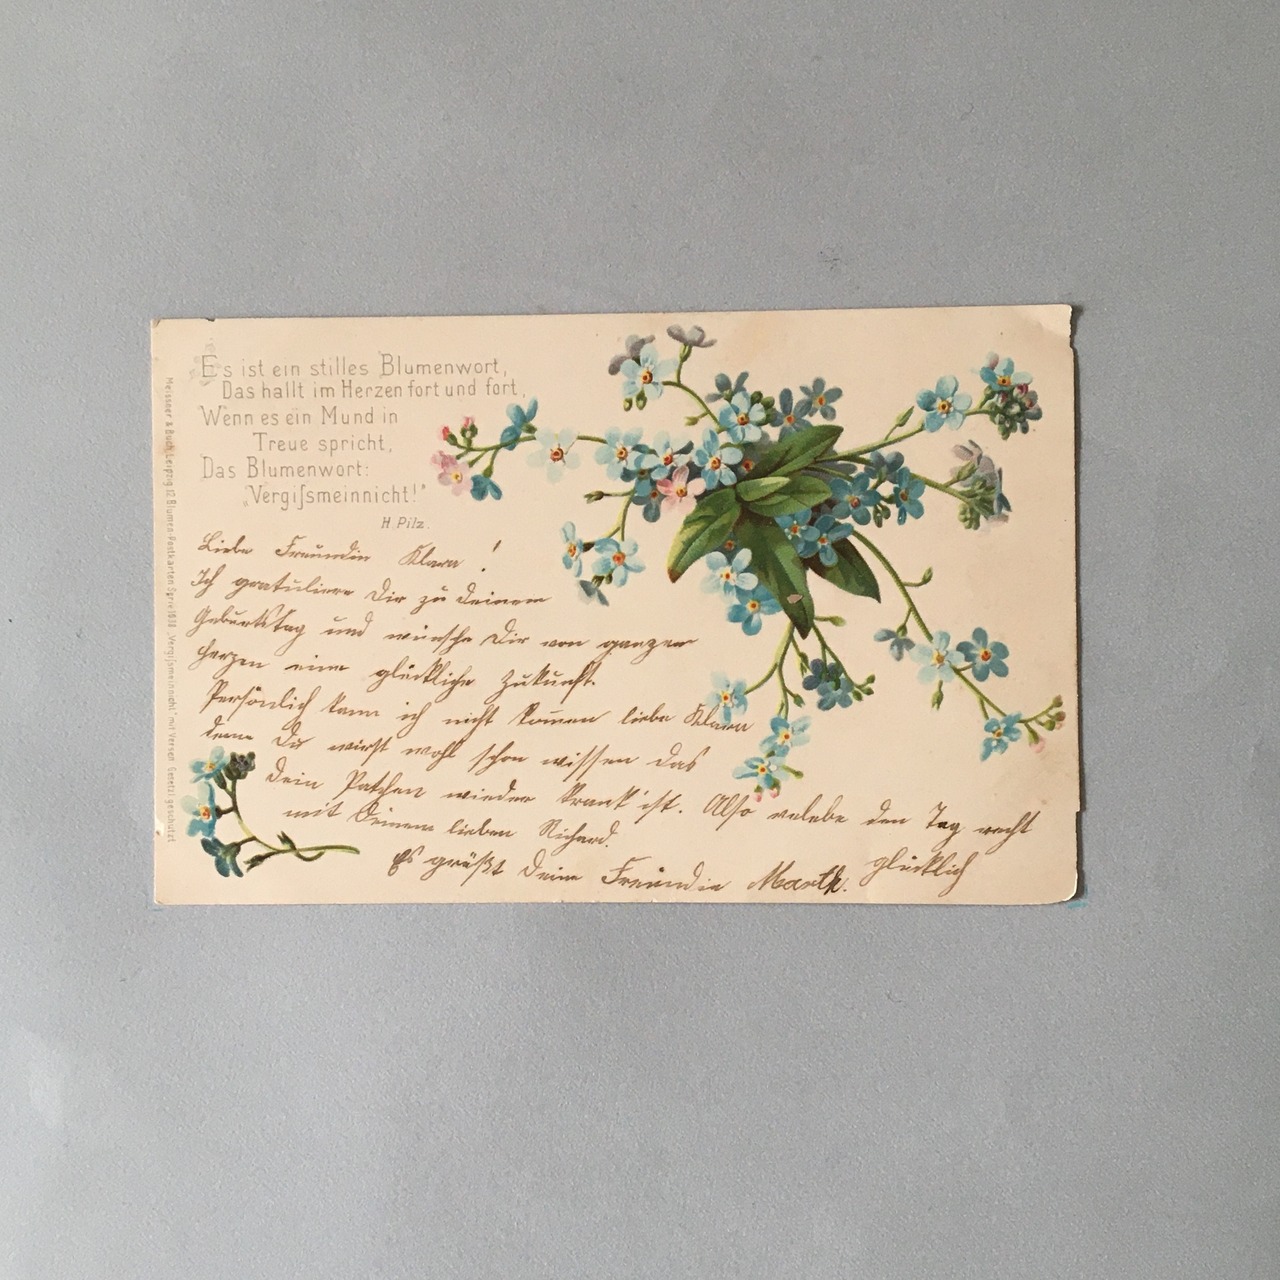 Es ist ein stilles Blumenwort,
Das hallt im Herzen fort und fort,
Wenn es ein Mund in
Treue spricht,
Das Blumenwort:
„Vergiſsmeinnicht!“
H. Pilz.
Meissner & Buch Leipzig 12 Blumen-Postkarten Serie 1038 „Vergiſsmeinnicht“ mit Versen Gesetzl. geschützt
Liebe Freundin Klara!
Ich gratuliere Dir zu Deinem
Geburtstag und wünsche Dir von ganzen
Herzen eine glückliche Zukunft.
Persönlich kann ich nicht kom̅en liebe Klara
denn Du wirst wohl schon wissen das
Dein Patchen wieder krank ist. Also verlebe den Tag recht
glücklich
mit Deinem lieben Richard.
Es grüßt Deine Freundin Marth.